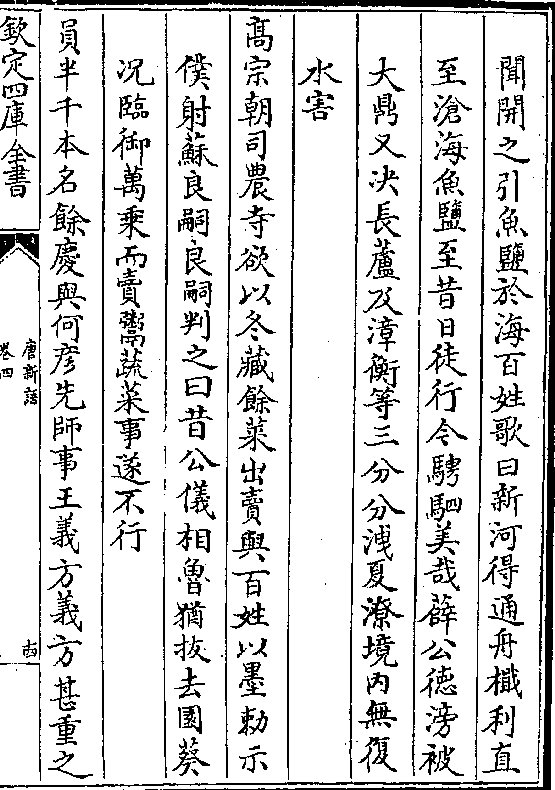 聞開之引魚鹽於海百姓歌曰新河得通舟檝利直
至滄海魚鹽至昔日徒行今騁駟美哉薛公徳滂被
大鼎又决長蘆及漳衡等三分分洩夏潦境内無復
水害
髙宗朝司農寺欲以冬藏餘菜出賣與百姓以墨勅示
僕射蘇良嗣良嗣判之曰昔公儀相魯猶拔去園葵
况臨御萬乗而賣鬻蔬菜事遂不行
員半千本名餘慶與何彦先師事王義方義方甚重之
欽定四庫全書
唐新語
卷四
十四